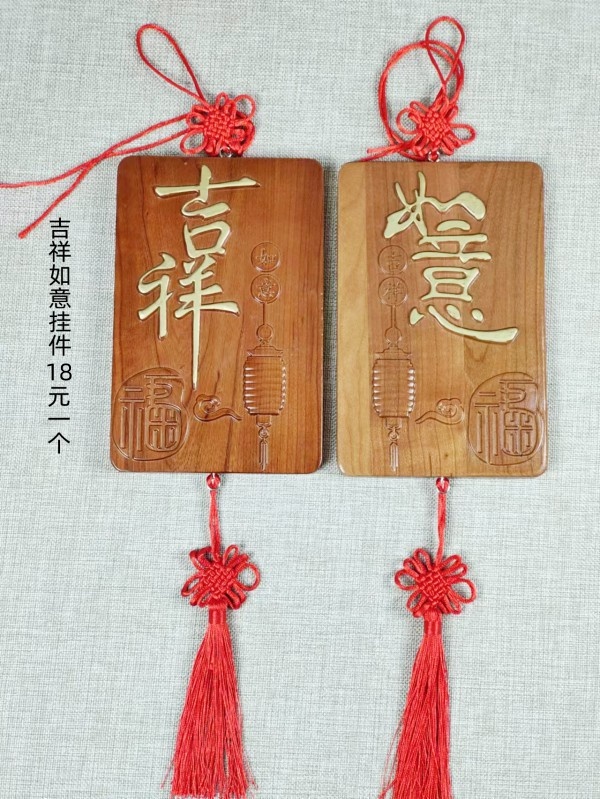 吉祥如意挂件18元一个
吉祥
如意
福
如意
吉祥
福